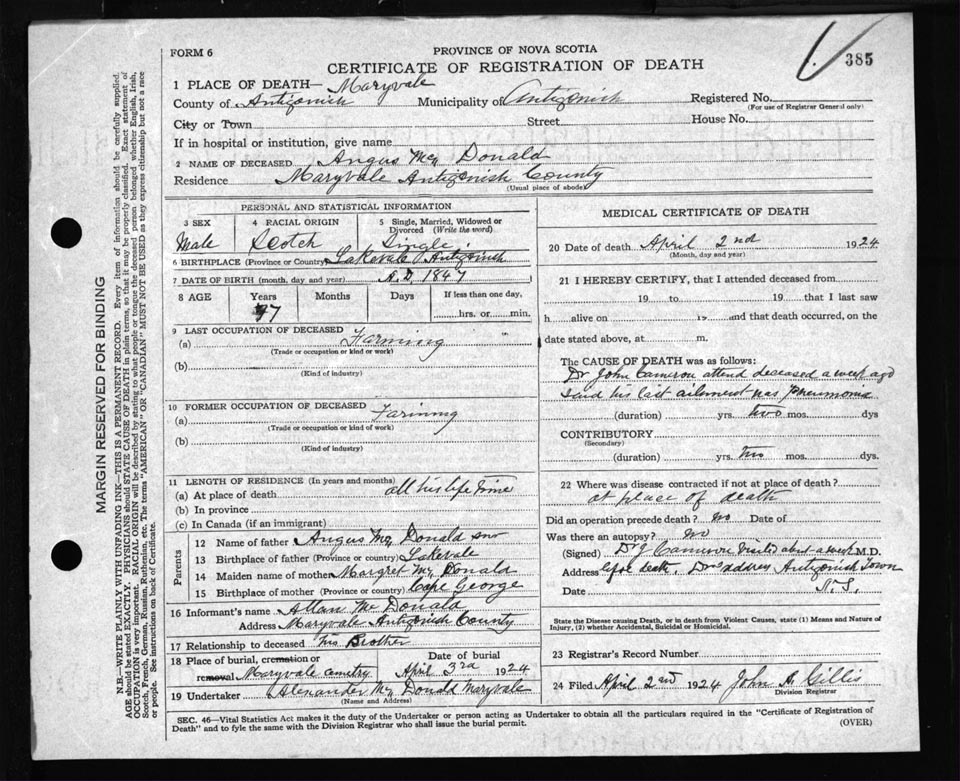 FORM 6
PROVINCE OF NOVA SCOTIA
CERTIFICATE OF REGISTRATION OF DEATH
385
1 PLACE OF DEATH— Maryvale
County of Antigonish Municipality of Antigonish Registered No.
(For use of Registrar General only)
City or Town Street House No.
If in hospital or institution, give name
2 NAME OF DECEASED Angus Mc Donald
Residence Maryvale Antigonish County
(Usual place of abode)
PERSONAL AND STATISTICAL INFORMATION
3 SEX 4 RACIAL ORIGIN 5 Single, Married, Widowed or Divorced (Write the word)
Male Scotch Single
6 BIRTHPLACE (Province or Country) Lakevale Antigonish
7 DATE OF BIRTH (month, day and year) A.D. 1847
8 AGE Years Months Days If less than one day,
77 hrs. or min.
9 LAST OCCUPATION OF DECEASED
(a) Farming
(Trade or occupation or kind or work)
(b)
(Kind of industry)
10 FORMER OCCUPATION OF DECEASED
(a) Farming
(Trade or occupation or kind of work)
(b)
(Kind of industry)
11 LENGTH OF RESIDENCE (In years and months)
(a) At place of death all his life time
(b) In province
(c) In Canada (if an immigrant)
Parents
12 Name of father Angus Mc Donald snr
13 Birthplace of father (Province or country) Lakevale
14 Maiden name of mother Margret Mc Donald
15 Birthplace of mother (Province or country) Cape George
16 Informant's name Allan Mc Donald
Address Maryvale Antigonish County
17 Relationship to deceased his Brother
18 Place of burial, cremation or Date of burial
removal Maryvale cemetry April 3rd 1924
19 Undertaker Alexander Mc Donald Maryvale
(Name and Address)
MEDICAL CERTIFICATE OF DEATH
20 Date of death April 2nd 1924
(Month, day and year)
21 I HEREBY CERTIFY, that I attended deceased from
19 to 19 that I last saw
h alive on 19 and that death occurred, on the
date stated above, at m.
The CAUSE OF DEATH was as follows:
Dr John Cameron attend deceased a week ago
said his last ailement was Pneumonia
(duration) yrs. two mos. dys
CONTRIBUTORY
(Secondary)
(duration) yrs. two mos. dys.
22 Where was disease contracted if not at place of death?
at place of death
Did an operation precede death? no Date of
Was there an autopsy? no
(Signed) Dr J Cameron visited about a week M.D.
Address death. Drs address Antigonish Town
Date N.S.
State the Disease causing Death, or in death from Violent Causes, state (1) Means and Nature of Injury, (2) whether Accidental, Suicidal or Homicidal.
23 Registrar's Record Number
24 Filed April 2nd 1924 John A Gillis
Division Registrar
SEC. 46—Vital Statistics Act makes it the duty of the Undertaker or person acting as Undertaker to obtain all the particulars required in the "Certificate of Registration of
Death" and to fyle the same with the Division Registrar who shall issue the burial permit.
(OVER)
MARGIN RESERVED FOR BINDING
N.B.—WRITE PLAINLY WITH UNFADING INK—THIS IS A PERMANENT RECORD. Every item of information should be carefully supplied.
AGE should be stated EXACTLY. PHYSICIANS should STATE CAUSE OF DEATH in plain terms, so that it may be properly classified. Exact statement of
OCCUPATION is very important. RACIAL ORIGIN will be described by stating to what people or tongue the deceased person belonged whether English, Irish,
Scotch, French, German, Russian, Ruthenian, etc. The terms "AMERICAN" OR "CANADIAN" MUST NOT BE USED as they express citizenship but not a race
or people. See instructions on back of Certificate.